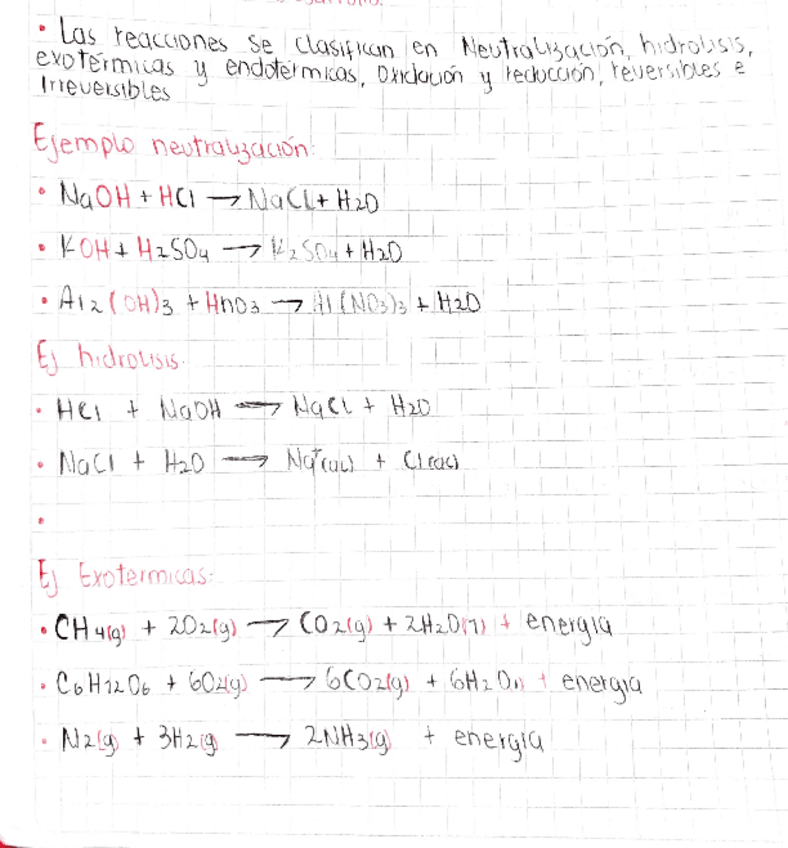 • Las reacciones se clasifican en Neutralización, hidrolisis,
exotérmicas y endotérmicas, Oxidación y reducción, reversibles e
Irreversibles
Ejemplo neutralización:
• NaOH + HCl → NaCl + H2O
• KOH + H2SO4 → K2SO4 + H2O
• Al2(OH)3 + HnO3 → Al(NO3)3 + H2O
Ej hidrolisis.
• HCl + NaOH → NaCl + H2O
• NaCl + H2O → Na+(ac) + Cl(ac)
•
Ej Exotermicas:
• CH4(g) + 2O2(g) → CO2(g) + 2H2O(l) + energía
• C6H12O6 + 6O2(g) → 6CO2(g) + 6H2O(l) + energía
• N2(g) + 3H2(g) → 2NH3(g) + energía